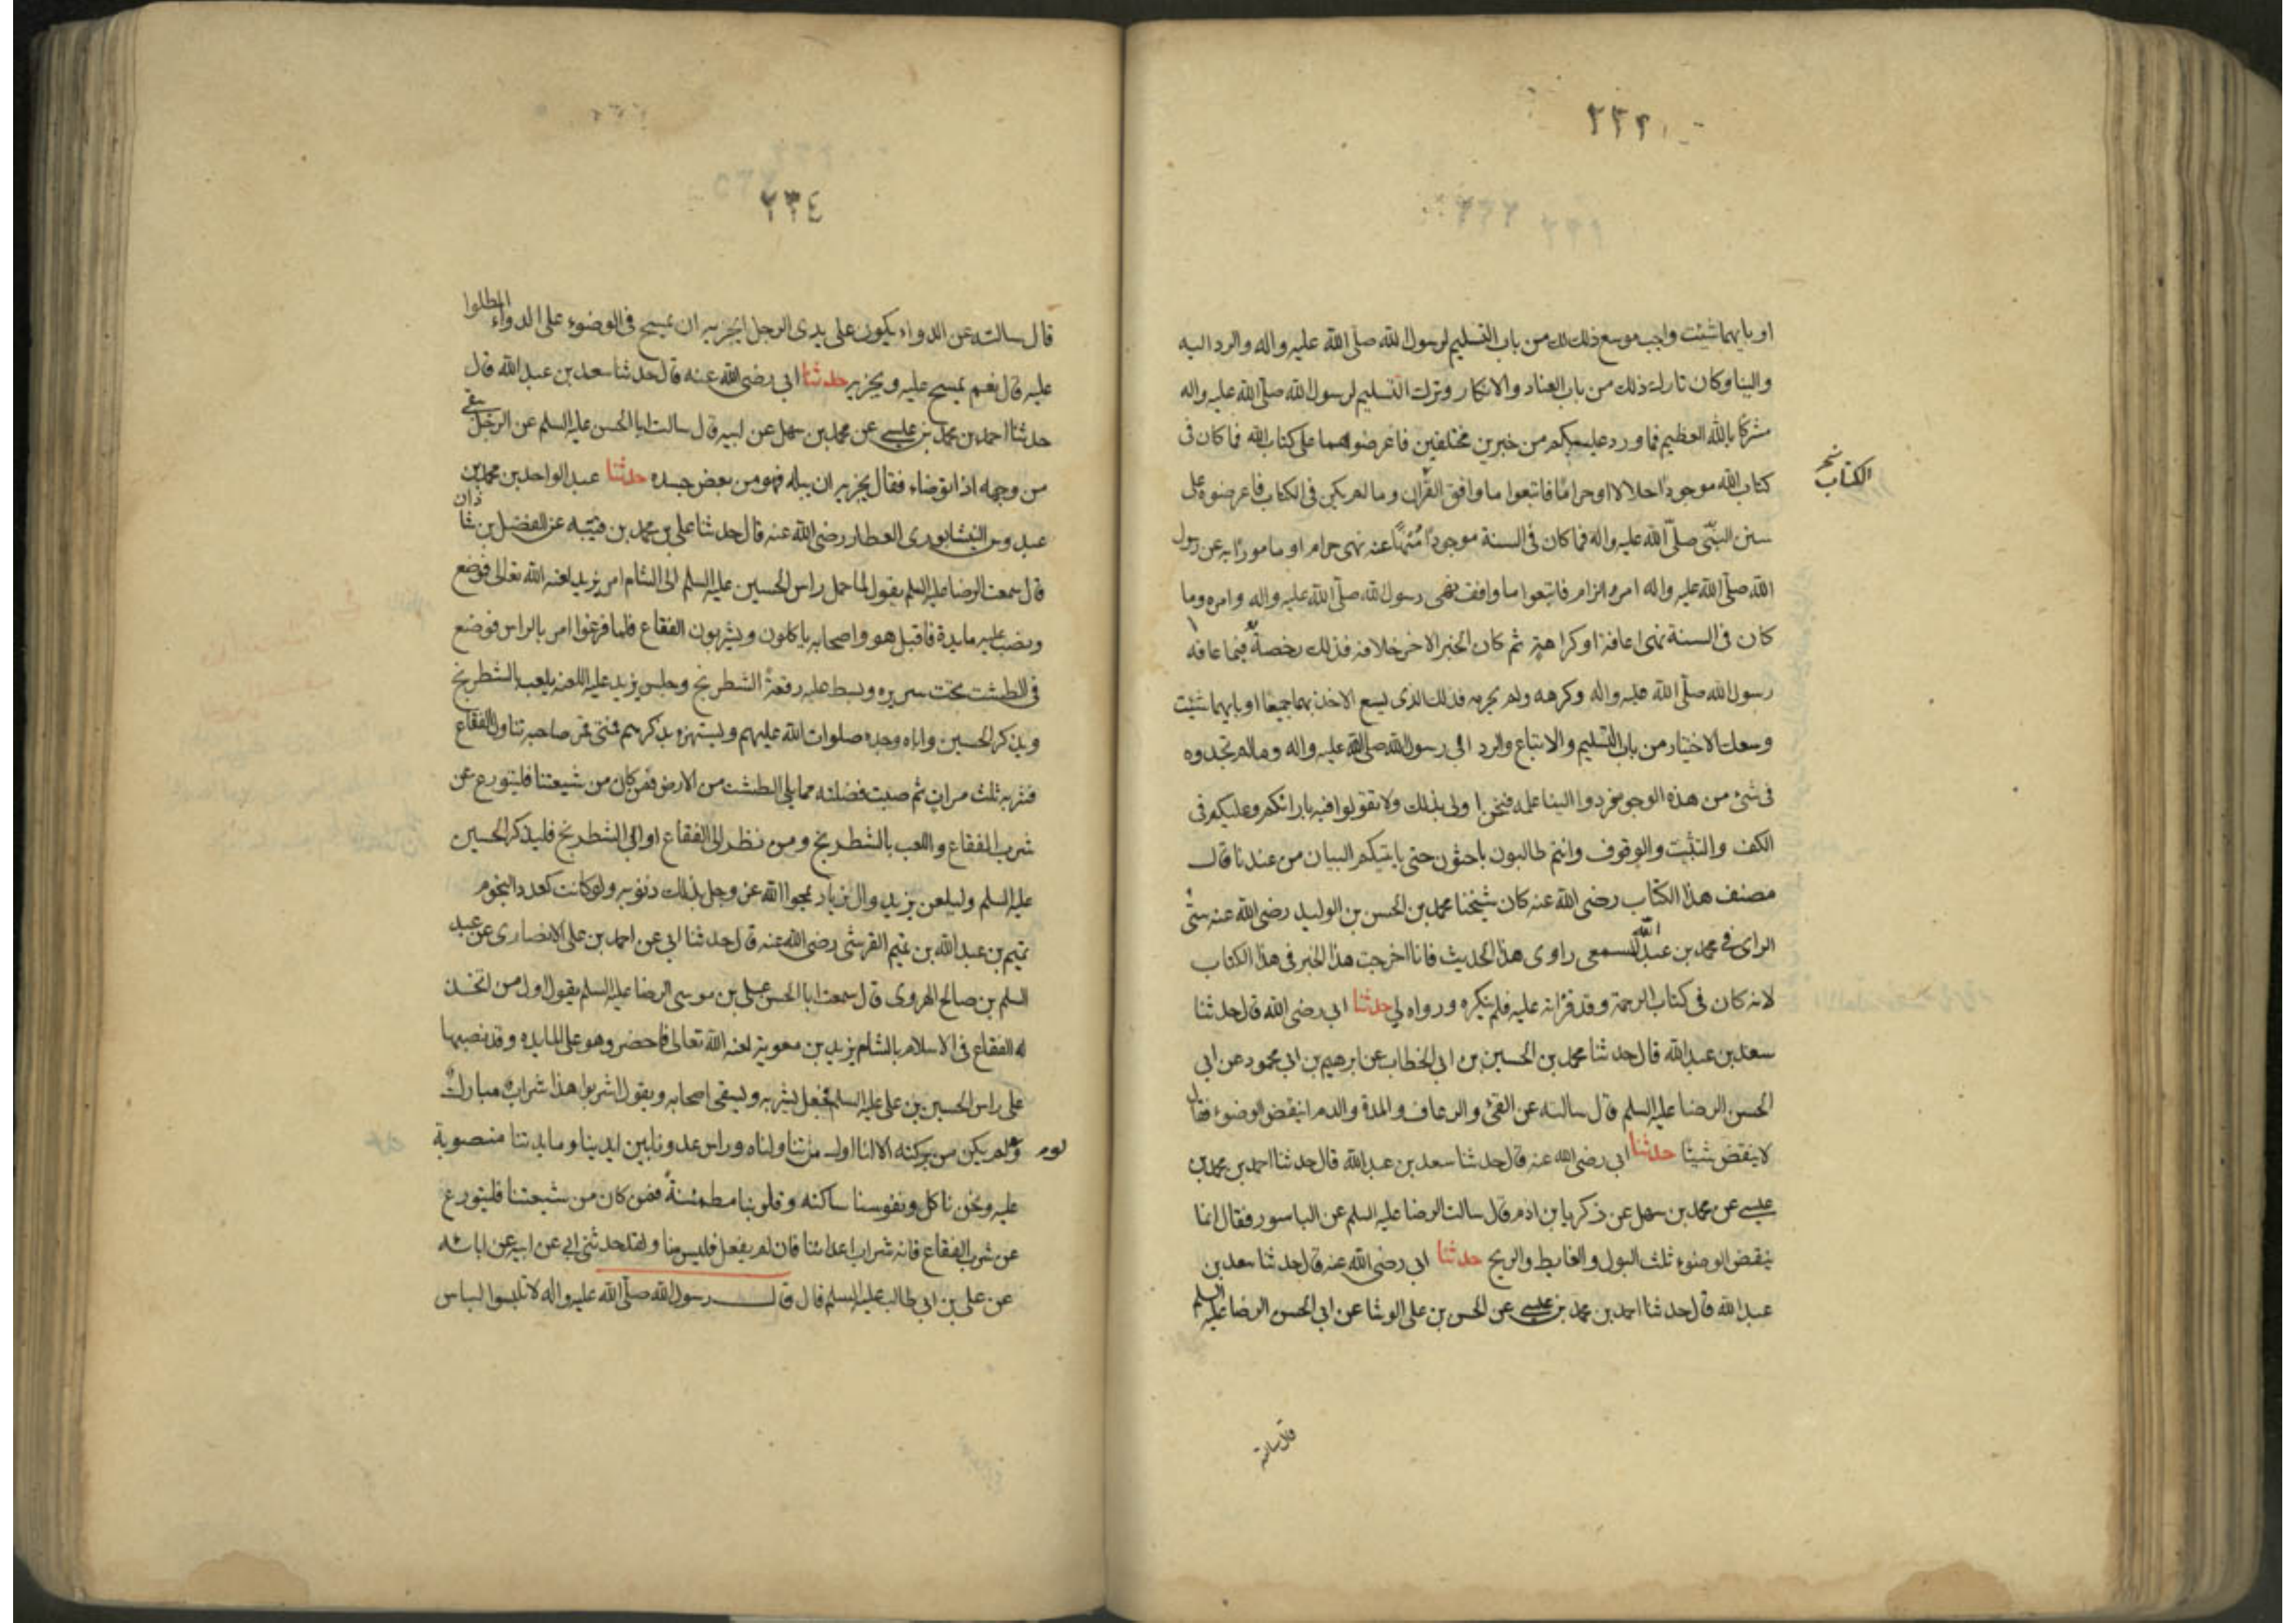 ٢٣٢
او بايهما شئت واجب موسع ذلك لك من باب التسليم لرسول الله صلى الله عليه واله والرد اليه
والينا وكان تارك ذلك من باب العناد والانكار وترك التسليم لرسول الله صلى الله عليه واله
مشركا بالله العظيم فما ورد عليكم من خبرين مختلفين فاعرضوهما على كتاب الله فما كان فى
كتاب الله موجودًا حلالا او حرامًا فاتبعوا ما وافق القرآن وما لم يكن فى الكتاب فاعرضوه على
الكتاب
سنن النبى صلى الله عليه واله فما كان فى السنة موجودًا منهيًا عنه نهى حرام او مامورًا به عن رسول
الله صلى الله عليه واله امر الزام فاتبعوا ما وافق نهى رسول الله صلى الله عليه واله وامره وما
كان فى السنة نهى اعافة او كراهة ثم كان الخبر الاخر خلافه فذلك رخصة فيما عافه
رسول الله صلى الله عليه واله وكرهه ولم يحرمه فذلك الذى يسع الاخذ بهما جميعًا او بايهما شئت
وسعك الاختيار من باب التسليم والاتباع والرد الى رسول الله صلى الله عليه واله ومالم تجدوه
فى شئ من هذه الوجوه فردوا الينا علمه فنحن اولى بذلك ولا تقولوا فيه بارائكم وعليكم فى
الكف والتثبت والوقوف وانتم طالبون باحثون حتى ياتيكم البيان من عندنا قال
مصنف هذا الكتاب رضى الله عنه كان شيخنا محمد بن الحسن بن الوليد رضى الله عنه سئ
الراى فى محمد بن عبد الله المسمعى راوى هذا الحديث فانا اخرجت هذا الخبر فى هذا الكتاب
لانه كان فى كتاب الرحمة وقد قراته عليه فلم ينكره ورواه لى حدثنا ابى رضى الله قال حدثنا
سعد بن عبد الله قال حدثنا محمد بن الحسين بن ابى الخطاب عن ابرهيم بن ابى محمود عن ابى
الحسن الرضا عليه السلم قال سالته عن القئ والرعاف والمدة والدم اينقض الوضوء فقال
لا ينقض شيئا حدثنا ابى رضى الله عنه قال حدثنا سعد بن عبد الله قال حدثنا احمد بن محمد بن
عيسى عن محمد بن سهل عن زكريا بن ادم قال سالت الرضا عليه السلم عن الباسور فقال انما
ينقض الوضوء ثلث البول والغايط والريح حدثنا ابى رضى الله عنه قال حدثنا سعد بن
عبد الله قال حدثنا احمد بن محمد بن عيسى عن الحسن بن على الوشا عن ابى الحسن الرضا عليه السلم
قال سالته
٢٣٤
قال سالته عن الدواء يكون على يدى الرجل ايجزيه ان يمسح فى الوضوء على الدواء المطلوا
عليه قال نعم يمسح عليه ويجزيه حدثنا ابى رضى الله عنه قال حدثنا سعد بن عبد الله قال
حدثنا احمد بن محمد بن عيسى عن محمد بن سهل عن ابيه قال سالت ابا الحسن عليه السلم عن الرجل يبقى
من وجهه اذا توضاء فقال يجزيه ان يبله فهو من بعض جسده حدثنا عبد الواحد بن محمد بن
عبدوس النيشابورى العطار رضى الله عنه قال حدثنا على بن محمد بن قتيبه عن الفضل بن شاذان
قال سمعت الرضا عليه السلم يقول لما حمل راس الحسين عليه السلم الى الشام امر يزيد لعنه الله تعالى فوضع
ونصب عليه مايدة فاقبل هو واصحابه ياكلون ويشربون الفقاع فلما فرغوا امر بالراس فوضع
فى الطشت تحت سريره وبسط عليه رقعة الشطرنج وجلس يزيد عليه اللعنه يلعب بالشطرنج
ويذكر الحسين واباه وجده صلوات الله عليهم ويستهزء بذكرهم فمتى قمر صاحبه تناول الفقاع
فشربه ثلث مرات ثم صبت فضلته مما يلى الطشت من الارض فمن كان من شيعتنا فليتورع عن
شرب الفقاع واللعب بالشطرنج ومن نظر الى الفقاع او الى الشطرنج فليذكر الحسين
عليه السلم وليلعن يزيد وال زياد يمحوا الله عز وجل بذلك ذنوبه ولو كانت كعدد النجوم
تميم بن عبد الله بن تميم القرشى رضى الله عنه قال حدثنا ابى عن احمد بن على الانصارى عن عبد
السلم بن صالح الهروى قال سمعت ابا الحسن على بن موسى الرضا عليه السلم يقول اول من اتخذ
له الفقاع فى الاسلام بالشام يزيد بن معوية لعنه الله تعالى فاحضر وهو على المايده وقد نصبها
على راس الحسين بن على عليه السلم فجعل يشربه ويسقى اصحابه ويقول اشربوا هذا شراب مبارك
لوم ولم يكن من بركته الا اننا اول من تناولناه وراس عدونا بين ايدينا ومايدتنا منصوبة
عليه ونحن ناكل ونفوسنا ساكنه وقلوبنا مطمئنة فمن كان من شيعتنا فليتورع
عن شرب الفقاع فانه شراب اعدائنا فان لم يفعل فليس منا ولقد حدثنى ابى عن ابيه عن ابائه
عن على بن ابى طالب عليه السلم قال قال رسول الله صلى الله عليه واله لا تلبسوا لباس